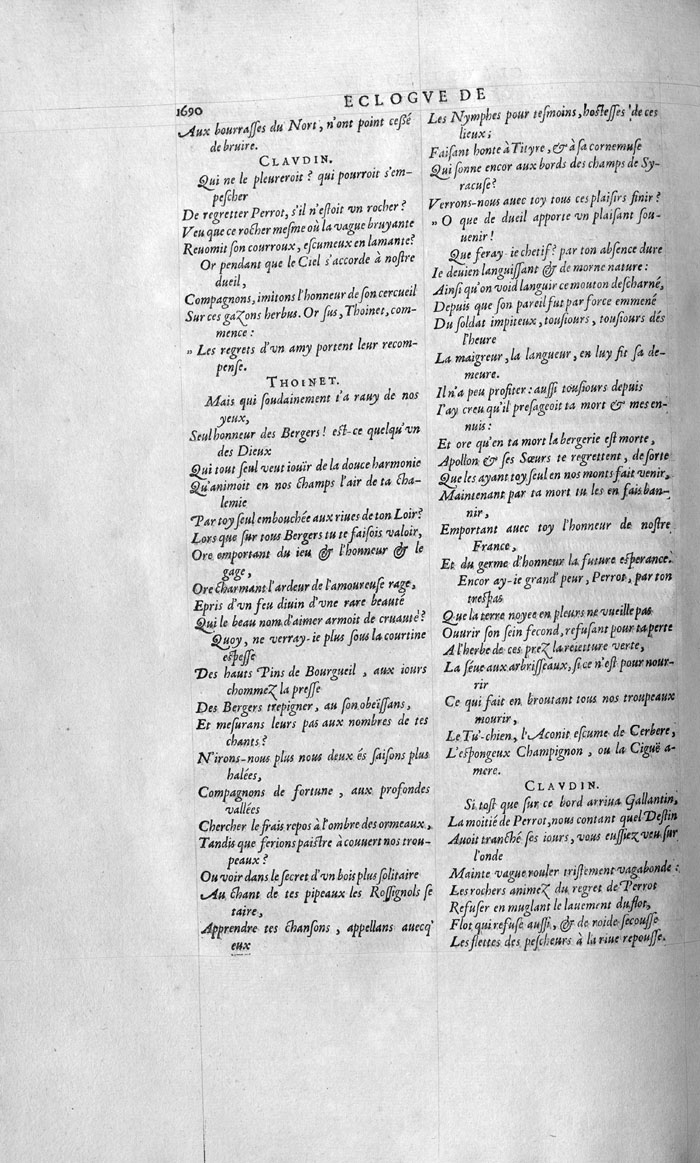 1690
ECLOGVE DE
Aux bourrasses du Nort, n'ont point cessé
de bruire.
CLAVDIN.
Qui ne le pleureroit? qui pourroit s'em-
pescher
De regretter Perrot, s'il n'estoit vn rocher?
Veu que ce rocher mesme où la vague bruyante
Reuomit son courroux, escumeux en lamante?
Or pendant que le Ciel s'accorde à nostre
dueil,
Compagnons, imitons l'honneur de son cercueil
Sur ces gazons herbus. Or sus, Thoinet, com-
mence:
" Les regrets d'vn amy portent leur recom-
pense.
THOINET.
Mais qui soudainement t'a rauy de nos
yeux,
Seul honneur des Bergers! est-ce quelqu'vn
des Dieux
Qui tout seul veut iouïr de la douce harmonie
Qu'animoit en nos champs l'air de ta cha-
lemie
Par toy seul embouchée aux riues de ton Loir?
Lors que sur tous Bergers tu te faisois valoir,
Ore emportant du ieu & l'honneur & le
gage,
Ore charmant l'ardeur de l'amoureuse rage,
Epris d'vn feu diuin d'vne rare beauté
Qui le beau nom d'aimer armoit de cruauté?
Quoy, ne verray-ie plus sous la courtine
espesse
Des hauts Pins de Bourgueil, aux iours
chommez la presse
Des Bergers trepigner, au son obeissans,
Et mesurans leurs pas aux nombres de tes
chants?
N'irons-nous plus nous deux és saisons plus
halées,
Compagnons de fortune, aux profondes
vallées
Chercher le frais repos à l'ombre des ormeaux,
Tandis que ferions paistre à couuert nos trou-
peaux?
Ou voir dans le secret d'vn bois plus solitaire
Au chant de tes pipeaux les Rossignols se
taire,
Apprendre tes chansons, appellans auecq'
eux
Les Nymphes pour tesmoins, hostesses de ces
lieux;
Faisant honte à Tityre, & à sa cornemuse
Qui sonne encor aux bords des champs de Sy-
racuse?
Verrons-nous auec toy tous ces plaisirs finir?
" O que de dueil apporte vn plaisant sou-
uenir!
Que feray-ie chetif? par ton absence dure
Ie deuien languissant & de morne nature:
Ainsi qu'on void languir ce mouton descharné,
Depuis que son pareil fut par force emmené
Du soldat impiteux, tousiours, tousiours dés
l'heure
La maigreur, la langueur, en luy fit sa de-
meure.
Il n'a peu profiter: aussi tousiours depuis
I'ay creu qu'il presageoit ta mort & mes en-
nuis:
Et ore qu'en ta mort la bergerie est morte,
Apollon & ses Sœurs te regrettent, de sorte
Que les ayant toy seul en nos monts fait venir,
Maintenant par ta mort tu les en fais ban-
nir,
Emportant auec toy l'honneur de nostre
France,
Et du germe d'honneur la future esperance.
Encor ay-ie grand' peur, Perrot, par ton
trespas
Que la terre noyee en pleurs ne vueille pas
Ouurir son sein fecond, refusant pour ta perte
A l'herbe de ces prez la reietture verte,
La séue aux arbrisseaux, si ce n'est pour nour-
rir
Ce qui fait en broutant tous nos troupeaux
mourir,
Le Tu'-chien, l'Aconit escume de Cerbere,
L'espongeux Champignon, ou la Ciguë a-
mere.
CLAVDIN.
Si tost que sur ce bord arriua Gallantin,
La moitié de Perrot, nous contant quel Destin
Auoit tranché ses iours, vous eussiez veu sur
l'onde
Mainte vague rouler tristement vagabonde:
Les rochers animez du regret de Perrot
Refuser en muglant le lauement du flot,
Flot qui refuse aussi, & de roide secousse
Les flettes des pescheurs à la riue repousse.